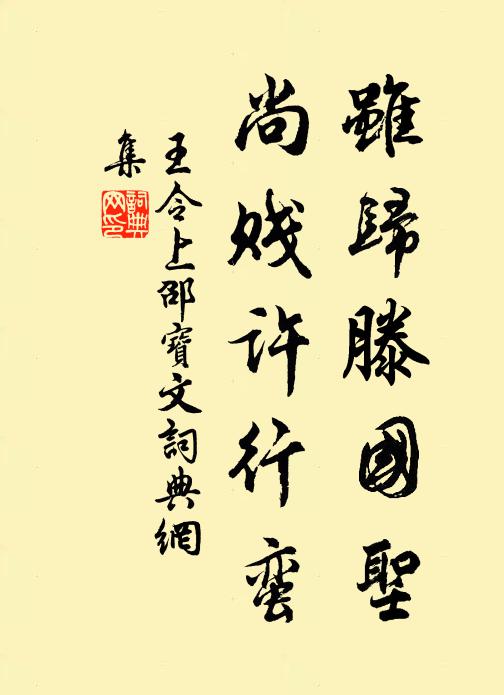 雖歸滕國聖
尚賤許行蛮
王令上邵寶文詞典網
集
詞典网印